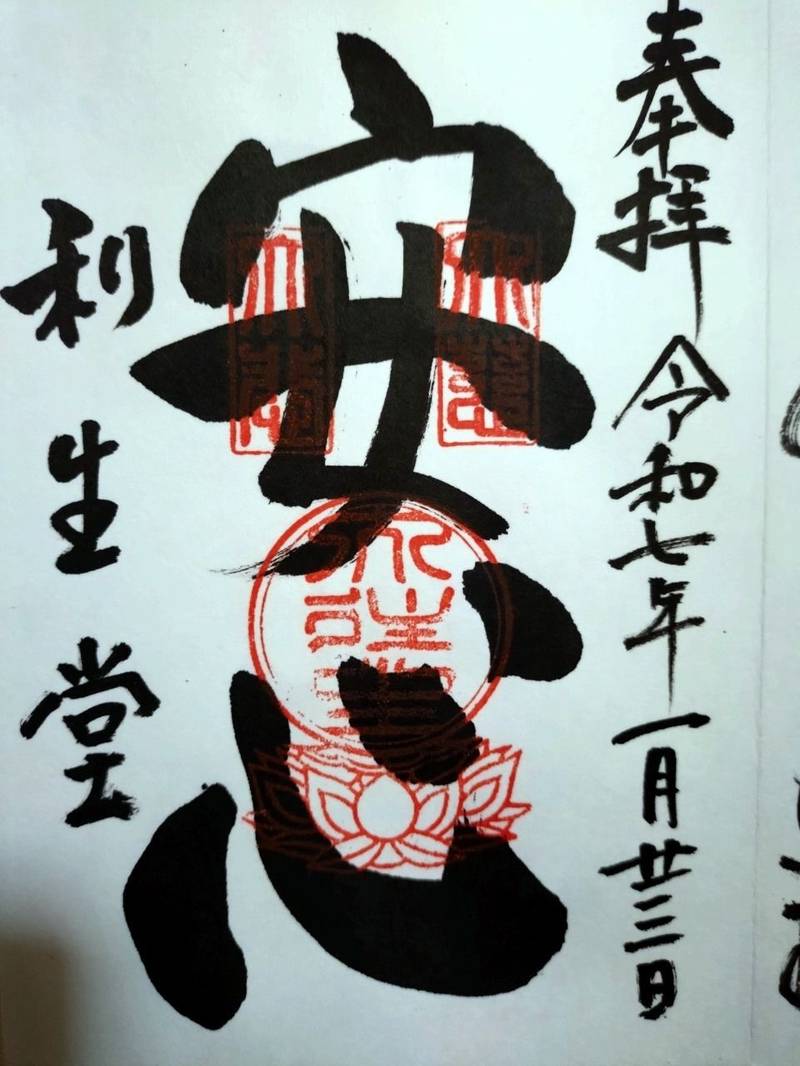 奉拝 令和七年一月廿三日
安心
利生堂